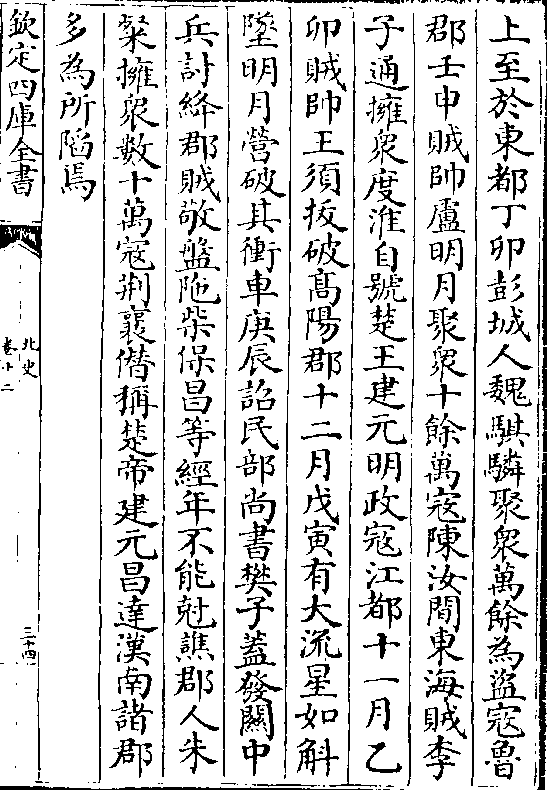 上至於東都丁卯彭城人魏騏驎聚衆萬餘為盜寇魯
郡壬申賊帥盧明月聚衆十餘萬寇陳汝間東海賊李
子通擁衆度淮自號楚王建元明政寇江都十一月乙
卯賊帥王須拔破髙陽郡十二月戊寅有大流星如斛
墜明月營破其衝車庚辰詔民部尚書樊子蓋發關中
兵討絳郡賊敬盤陁柴保昌等經年不能尅譙郡人朱
粲擁衆數十萬寇荆襄僭稱楚帝建元昌達漢南諸郡
多為所陷焉
欽定四庫全書
北史
卷十二
三十四